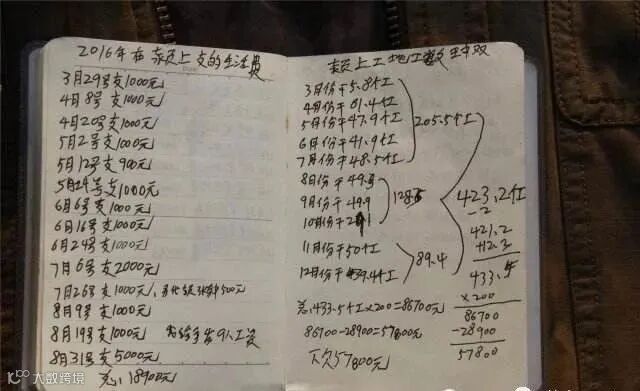 2016年在颍上支的生活费
3月29号支1000元
4月8号支1000元
4月20号支1000元
5月2号支1000元
5月12号支900元
5月29号支1000元
6月6号支1000元
6月16号支1000元
6月24号支1000元
7月6号支2000元
7月26号支1000元,
8月9号支1000元
8月19号支1000元
8月31号支5000元
总:18900元
颍上工地工数
3月份干5.8个工
4月份干61.4个工
5月份干47.9个工
6月份干41.9个工
7月份干48.5个工
205.5个工
8月份干49.3
9月份干49.9
10月份干
11月份干50个工
12月份干39.4个工
89.4
423.2个工
-2
421.2
12.3
433.5
×200
86700
-28900
57800
总:433.5个工×200=86700元
86700-28900=57800元
下欠57800元
大数跨境